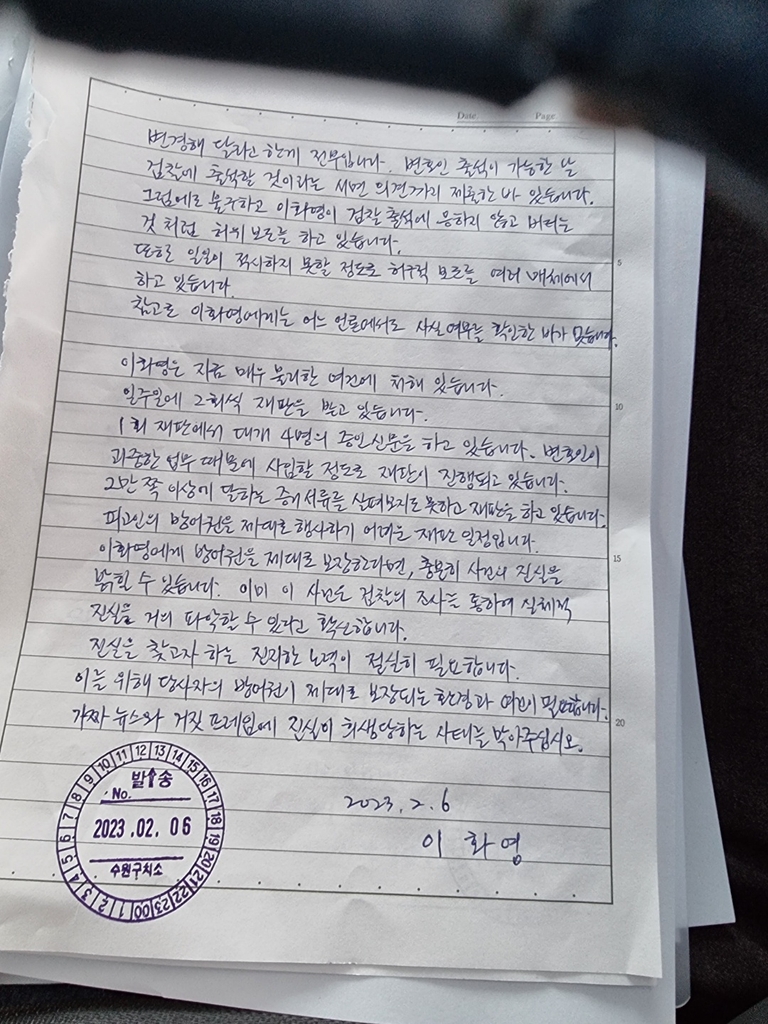 Date. Page.
변경해 달라고 한게 전부입니다. 변호인 출석이 가능한 날
검찰에 출석할 것이라는 서면 의견까지 제출한 바 있습니다.
그럼에도 불구하고 이화영이 검찰 출석에 응하지 않고 버티는
것 처럼 허위 보도를 하고 있습니다.
또한 일일이 적시하지 못할 정도로 허구적 보도를 여러 매체에서
5
하고 있습니다.
참고로 이화영에게는 어느 언론에서도 사실 여부를 확인한 바가 없습니다.
이화영은 지금 매우 불리한 여건에 처해 있습니다.
일주일에 2회씩 재판을 받고 있습니다.
10
1회 재판에서 대개 4명의 증인신문을 하고 있습니다. 변호인이
과중한 업무 때문에 사임할 정도로 재판이 진행되고 있습니다.
2만 쪽 이상에 달하는 증거서류를 살펴보지도 못하고 재판을 하고 있습니다.
피고인의 방어권을 제대로 행사하기 어려운 재판 일정입니다.
이화영에게 방어권을 제대로 보장한다면, 충분히 사건의 진실을
15
밝힐 수 있습니다. 이미 이 사건도 검찰의 조사를 통하여 실체적
진실을 거의 파악할 수 있다고 확신합니다.
진실을 찾고자 하는 진지한 노력이 절실히 필요합니다.
이를 위해 당사자의 방어권이 제대로 보장되는 환경과 여건이 필요합니다.
20
가짜 뉴스와 거짓 프레임에 진실이 희생당하는 사태를 막아주십시오.
2023. 2. 6
이 화 영
발송
No.
2023.02.06
수원구치소
00 1 2 3 4 5 6 7 8 9 10 11 12 13 14 15 16 17 18 19 20 21 22 23